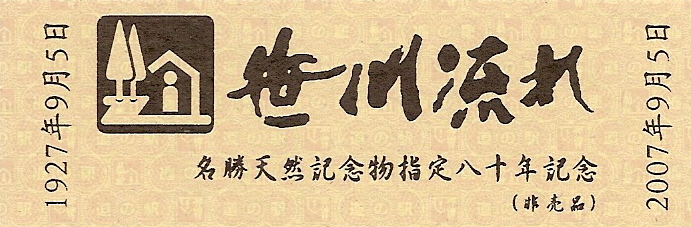 1927年9月5日
笹川流れ
名勝天然記念物指定八十年記念
（非売品）
2007年9月5日